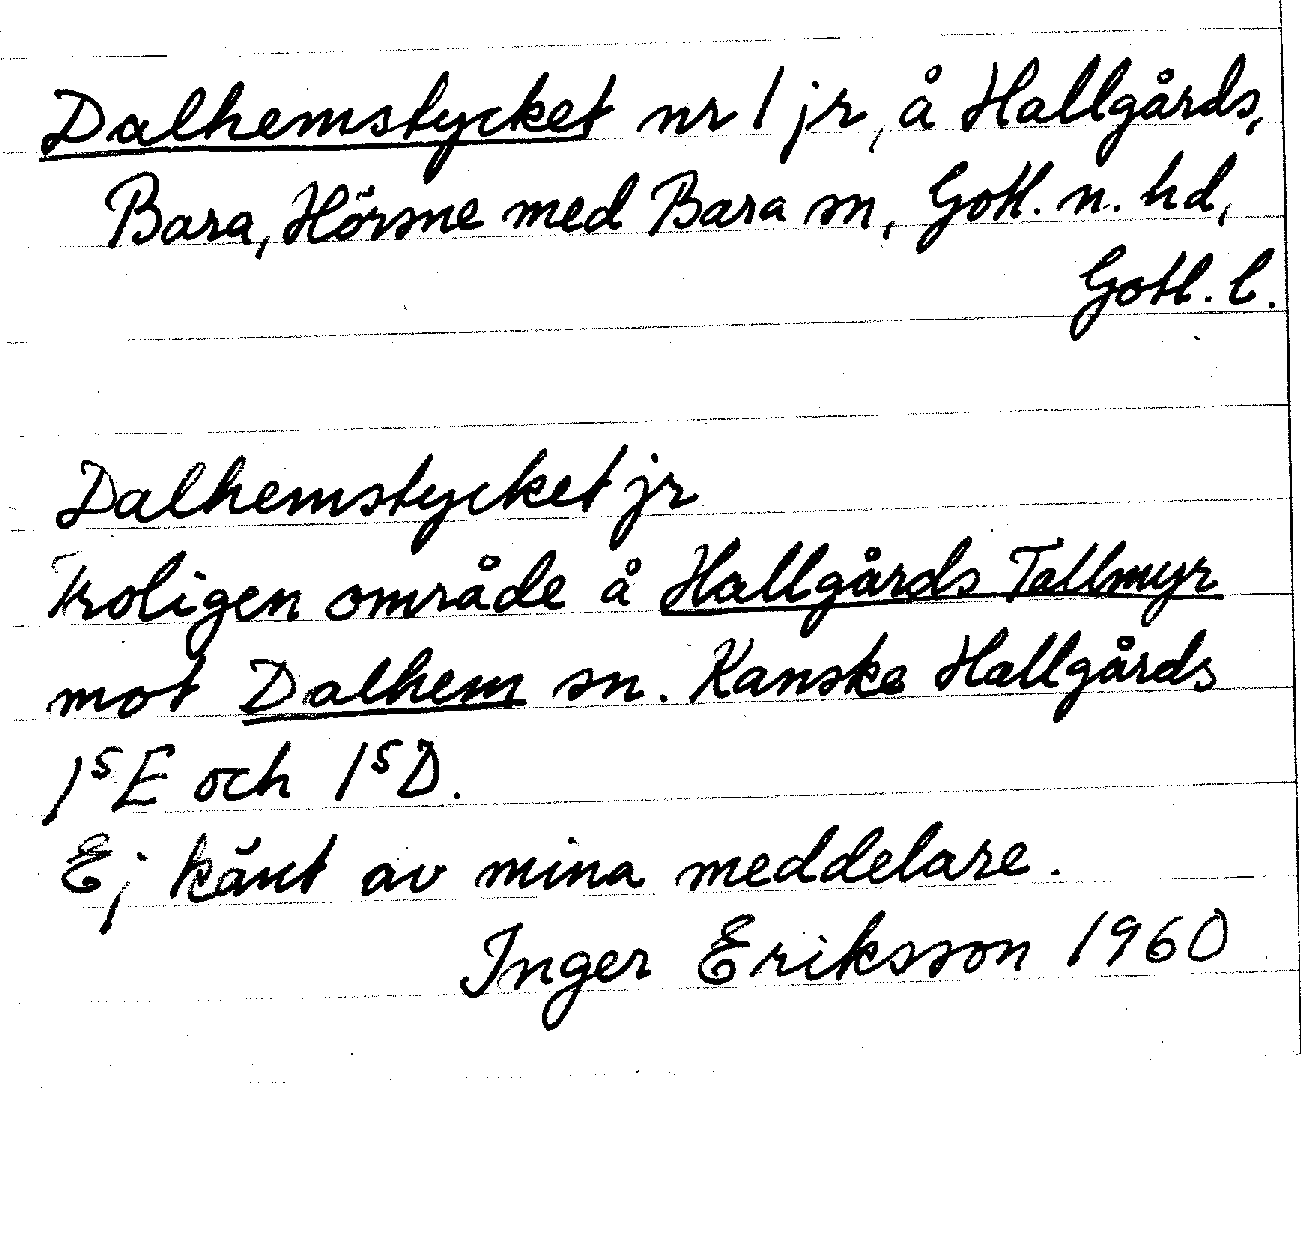 Dalhemstycket nr 1 jr, å Hallgårds,
Bara, Hörsne med Bara sn, Gotl. n. hd,
Gotl. l.
Dalhemstycket jr
Troligen område å Hallgårds Tallmyr
mot Dalhem sn. Kanske Hallgårds
1⁵E och 1⁵D.
Ej känt av mina meddelare.
Inger Eriksson 1960